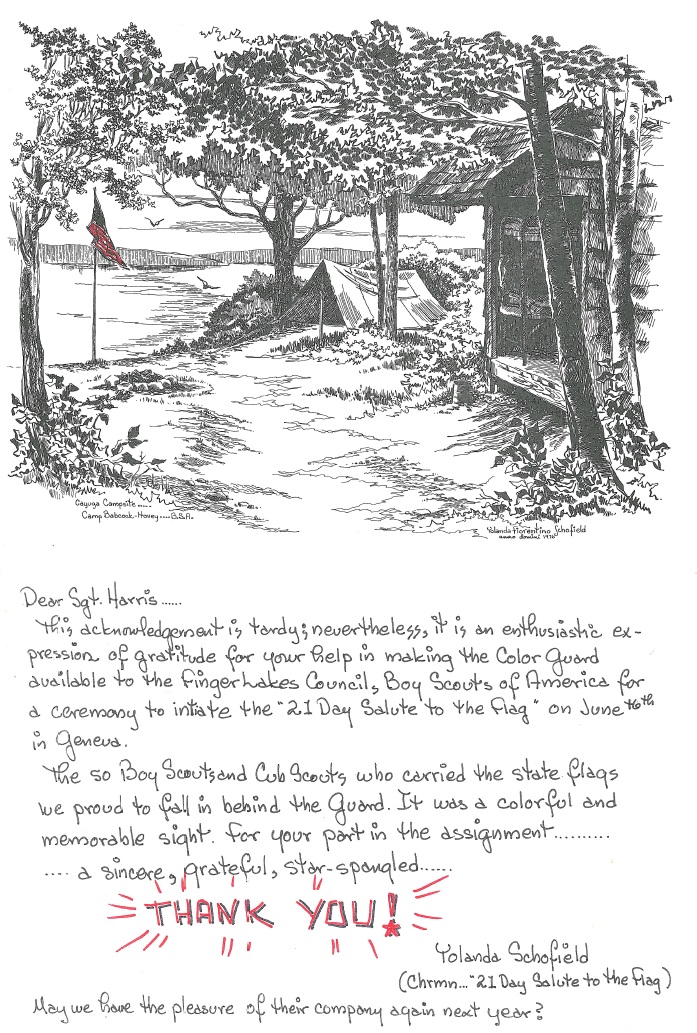 Cayuga Campsite.....
Camp Babcock-Hovey....B.S.A.
Yolanda Fiorentino Schofield
anno domini 1976
Dear Sgt. Harris......
This acknowledgement is tardy; nevertheless, it is an enthusiastic ex-
pression of gratitude for your help in making the Color Guard
available to the Finger Lakes Council, Boy Scouts of America for
a ceremony to intiate the "21 Day Salute to the Flag" on June 16th
in Geneva.
The 50 Boy Scouts and Cub Scouts who carried the state flags
we proud to fall in behind the Guard. It was a colorful and
memorable sight. For your part in the assignment..........
.... a sincere, grateful, star-spangled......
THANK YOU!
Yolanda Schofield
(Chrmn..."21 Day Salute to the Flag)
May we have the pleasure of their company again next year?